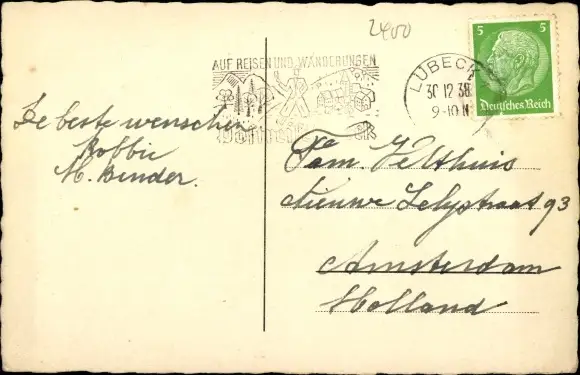 2400
AUF REISEN UND WANDERUNGEN
LÜBECK
30 12 38
9-10 N
5 5
Deutsches Reich
De beste wenschen
Robbie
M. Bender.
Fam. Velthuis
Nieuwe Lelystraat 93
Amsterdam
Holland